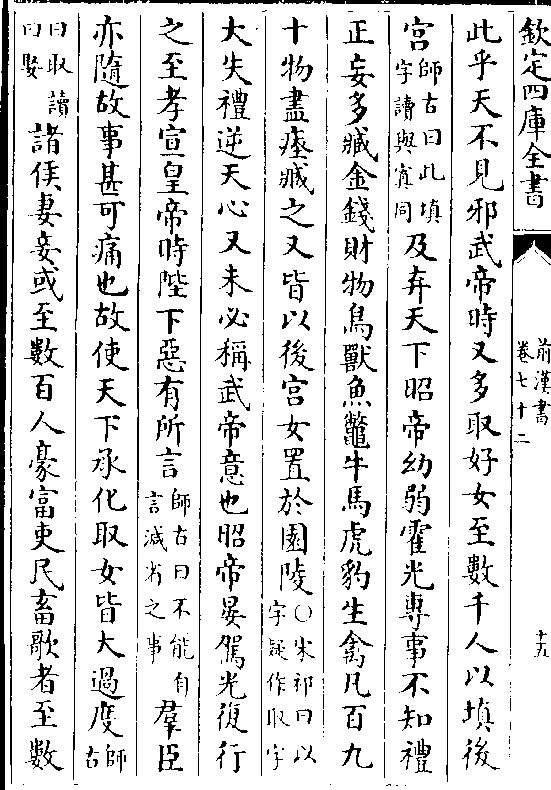 欽定四庫全書
前漢書
卷七十二
十五
此乎天不見邪武帝時又多取好女至數千人以填後
宮師古曰此填字讀與寘同及弃天下昭帝幼弱霍光專事不知禮
正妄多臧金錢財物鳥獸魚鼈牛馬虎豹生禽凡百九
十物盡瘞臧之又皆以後宮女置於園陵○宋祁曰以字疑作取字
大失禮逆天心又未必稱武帝意也昭帝晏駕光復行
之至孝宣皇帝時陛下惡有所言師古曰不能自言減省之事羣臣
亦隨故事甚可痛也故使天下承化取女皆大過度師古
曰取讀曰娶諸侯妻妾或至數百人豪富吏民畜歌者至數